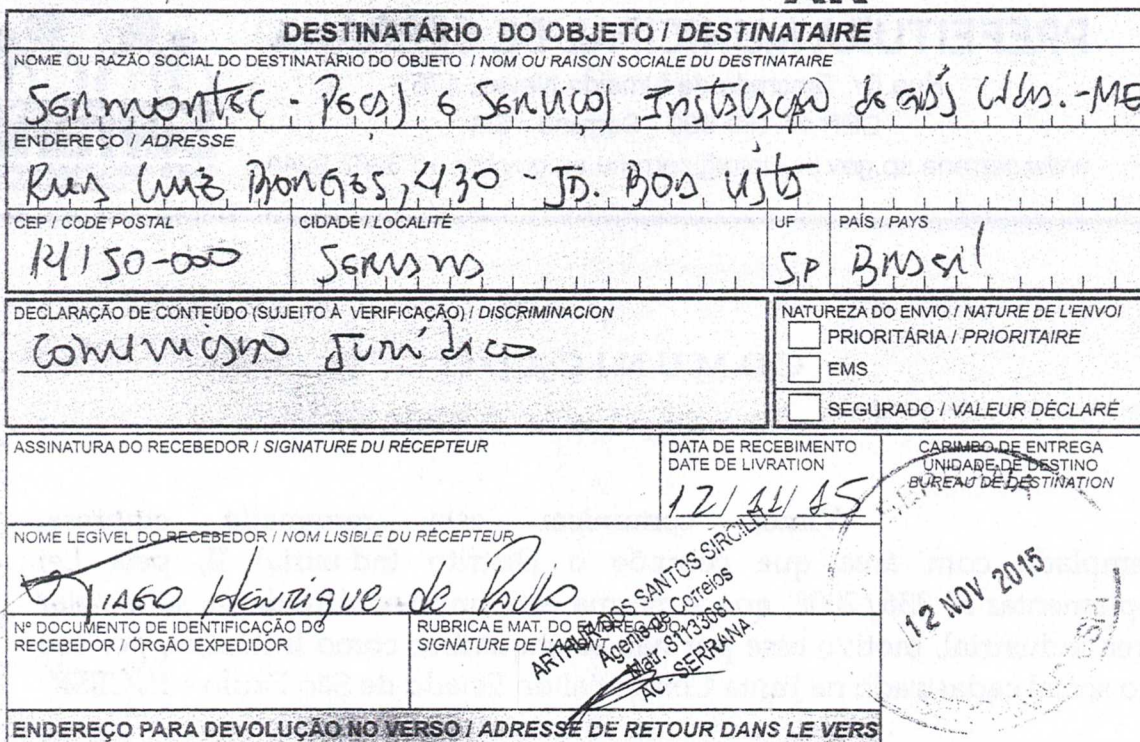 DESTINATÁRIO DO OBJETO / DESTINATAIRE
NOME OU RAZÃO SOCIAL DO DESTINATÁRIO DO OBJETO / NOM OU RAISON SOCIALE DU DESTINATAIRE
Sermontec - Peças e Serviços Instalação de Gás Ltda. ME
ENDEREÇO / ADRESSE
Rua Luiz Borges, 430 - Jd. Boa Vista
CEP / CODE POSTAL CIDADE / LOCALITÉ UF PAÍS / PAYS
14150-000 Serrana SP Brasil
DECLARAÇÃO DE CONTEÚDO (SUJEITO À VERIFICAÇÃO) / DISCRIMINACION
Jurídico
NATUREZA DO ENVIO / NATURE DE L'ENVOI
PRIORITÁRIA / PRIORITAIRE
EMS
SEGURADO / VALEUR DÉCLARÉ
ASSINATURA DO RECEBEDOR / SIGNATURE DU RÉCEPTEUR
DATA DE RECEBIMENTO
DATE DE LIVRATION
12/11/15
CARIMBO DE ENTREGA
UNIDADE DE DESTINO
BUREAU DE DESTINATION
12 NOV 2015
NOME LEGÍVEL DO RECEBEDOR / NOM LISIBLE DU RÉCEPTEUR
Tiago Henrique de Paulo
Nº DOCUMENTO DE IDENTIFICAÇÃO DO
RECEBEDOR / ÓRGÃO EXPEDIDOR
RUBRICA E MAT. DO EMPREGADO /
SIGNATURE DE L'AGENT
ARTHUR DOS SANTOS SIRCILLI
Agente de Correios
Mat. 81133681
AC - SERRANA
ENDEREÇO PARA DEVOLUÇÃO NO VERSO / ADRESSE DE RETOUR DANS LE VERS